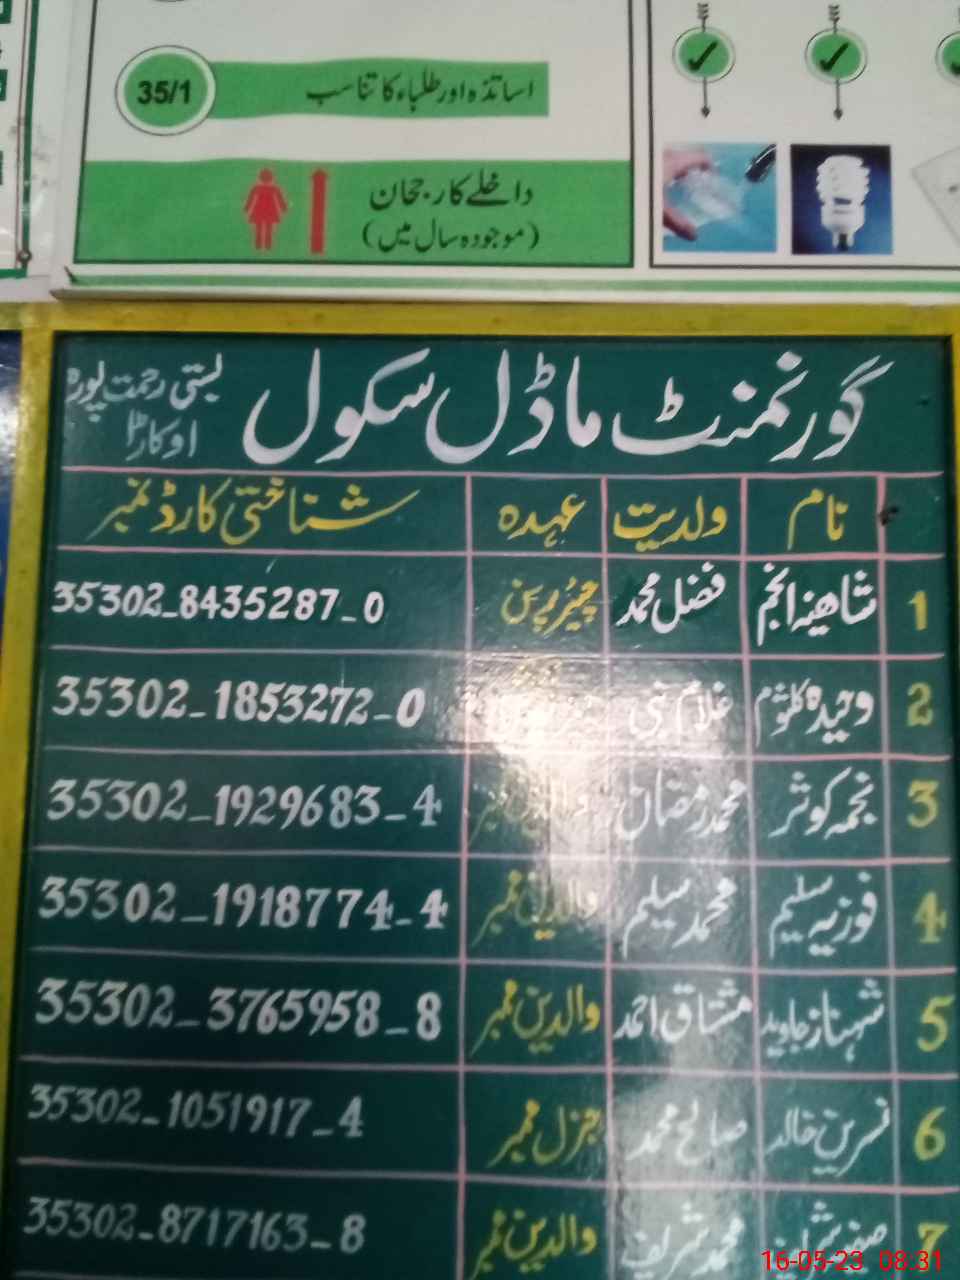 35/1 اساتذہ اور طلباء کا تناسب
داخلے کا رجحان
(موجودہ سال میں)
گورنمنٹ ماڈل سکول بستی رحمت پورہ
اوکاڑا
نام ولدیت عہدہ شناختی کارڈ نمبر
1 شاھینہ انجم فضل محمد چیئرپرسن 35302_8435287_0
2 وحیدہ کلثوم غلام نبی 35302_1853272_0
3 نجمہ کوثر محمد رمضان والدین ممبر 35302_1929683_4
4 فوزیہ سلیم محمد سلیم والدین ممبر 35302_1918774_4
5 شہناز جاوید مشتاق احمد والدین ممبر 35302_3765958_8
6 نسرین خالد صالح محمد جنرل ممبر 35302_1051917_4
7 محمد شریف والدین ممبر 35302_8717163_8
16-05-23 08:31